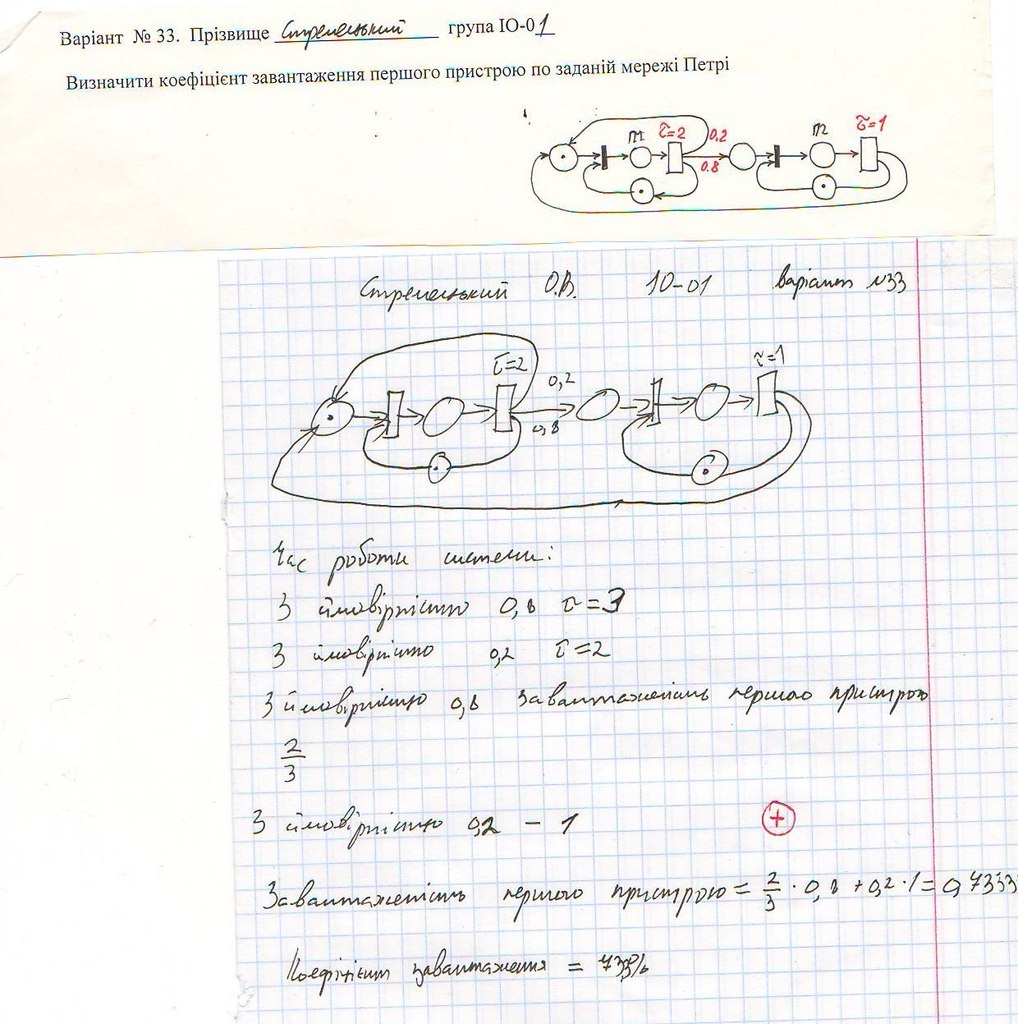 Варіант № 33. Прізвище Стрелецький група ІО-01
Визначити коефіцієнт завантаження першого пристрою по заданій мережі Петрі
m τ=2 0.2 m τ=1
0.8
Стрелецький О.В. ІО-01 Варіант №33
τ=2 τ=1
0,2
0,8
Час роботи системи:
З ймовірністю 0,8 τ=3
З ймовірністю 0,2 τ=2
З ймовірністю 0,8 завантаженість першого пристрою
2/3
З ймовірністю 0,2 – 1
+
Завантаженість першого пристрою = 2/3 · 0,8 + 0,2 · 1 = 0,7333
Коефіцієнт завантаження = 73%